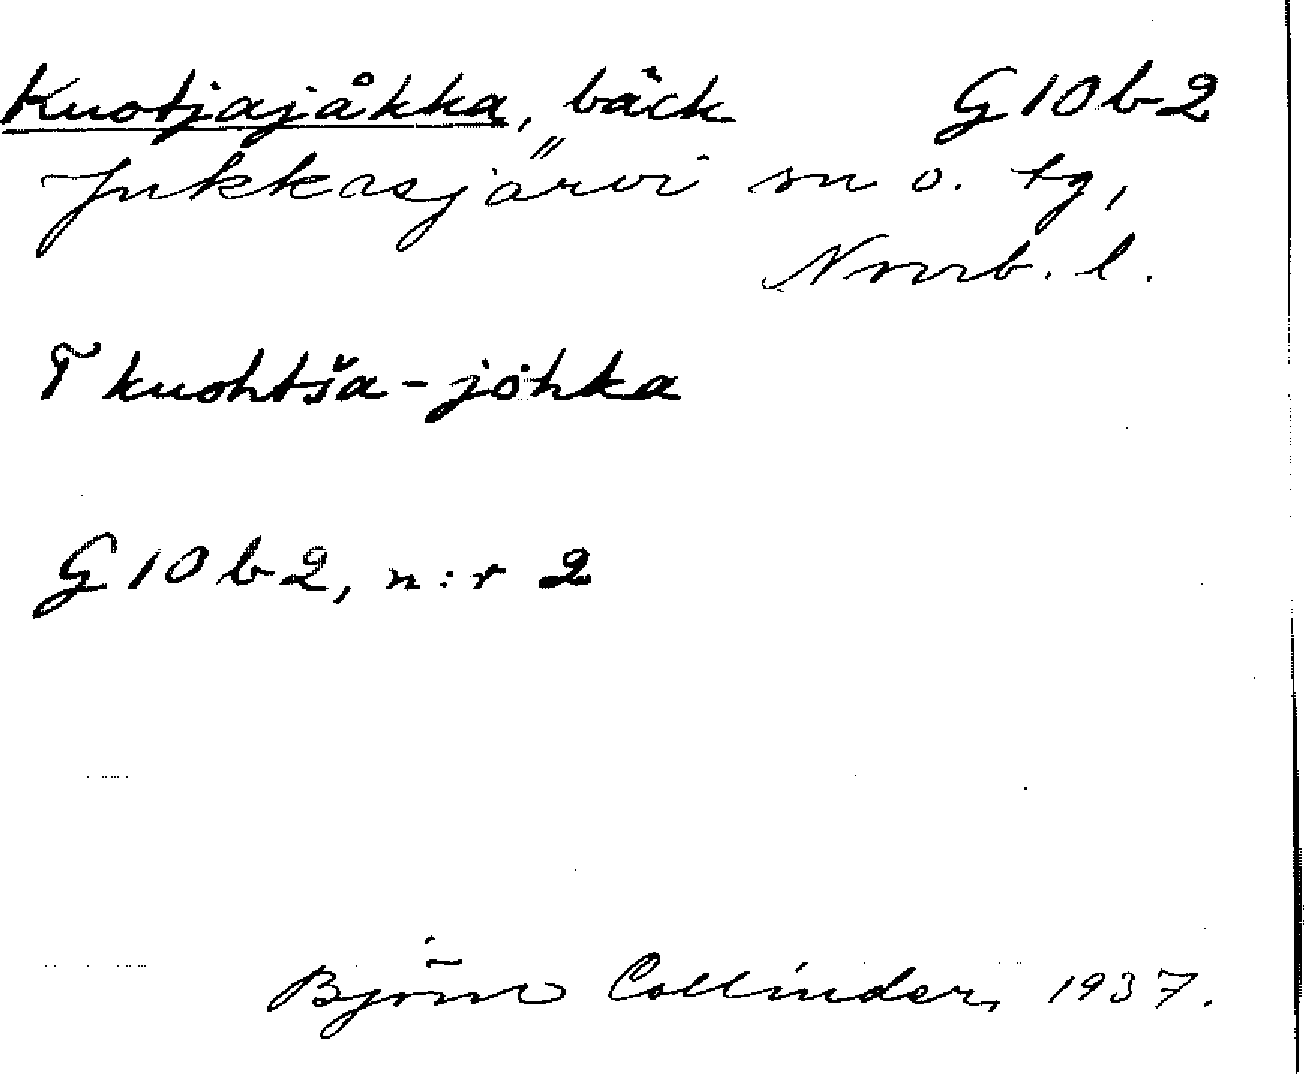 Kuotjajåkka, bäck G10b2
Jukkasjärvi sn o. tg,
Norrb. l.
T kuohtša-johka
G10b2, n:r 2
Björn Collinder, 1937.